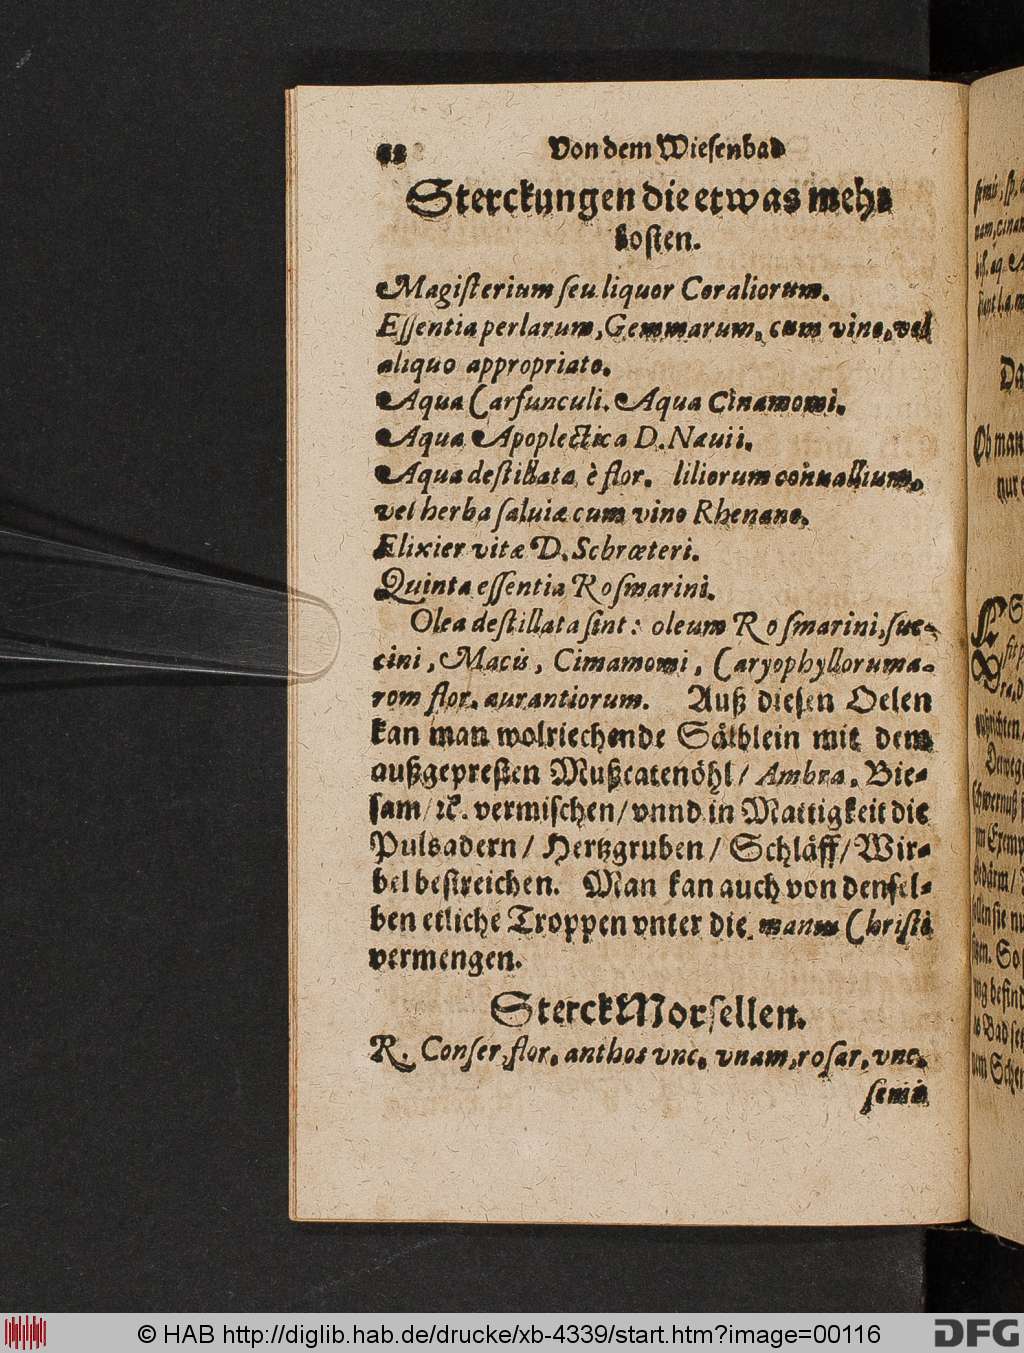 Von dem Wiesenbad
Sterckungen die etwas mehr
kosten.
Magiſterium ſeu liquor Coraliorum.
Eſſentia perlarum, Gemmarum, cum vino, vel
aliquo appropriato.
Aqua Carfunculi. Aqua Cinamomi.
Aqua Apoplectica D. Nauii.
Aqua deſtillata è flor. liliorum conuallium,
vel herba ſaluiæ cum vino Rhenano.
Elixier vitæ D. Scbrœteri.
Quinta eſſentia Roſmarini.
Olea deſtillata ſint: oleum Roſmarini, ſuc-
cini, Macis, Cimamomi, Caryophyllorum a-
rom flor. aurantiorum. Auß dieſen Oelen
kan man wolriechende Sälblein mit dem
außgepreſten Mußcatenöhl / Ambra, Bie-
ſam / ꝛc. vermiſchen / vnnd in Mattigkeit die
Pulsadern / Hertzgruben / Schläff / Wir-
bel beſtreichen. Man kan auch von denſel-
ben etliche Troppen vnter die manus Chriſti
vermengen.
Sterck Morſellen.
R. Conſer. flor. anthos vnc. vnam, roſar. vnc.
ſemis
© HAB http://diglib.hab.de/drucke/xb-4339/start.htm?image=00116
DFG